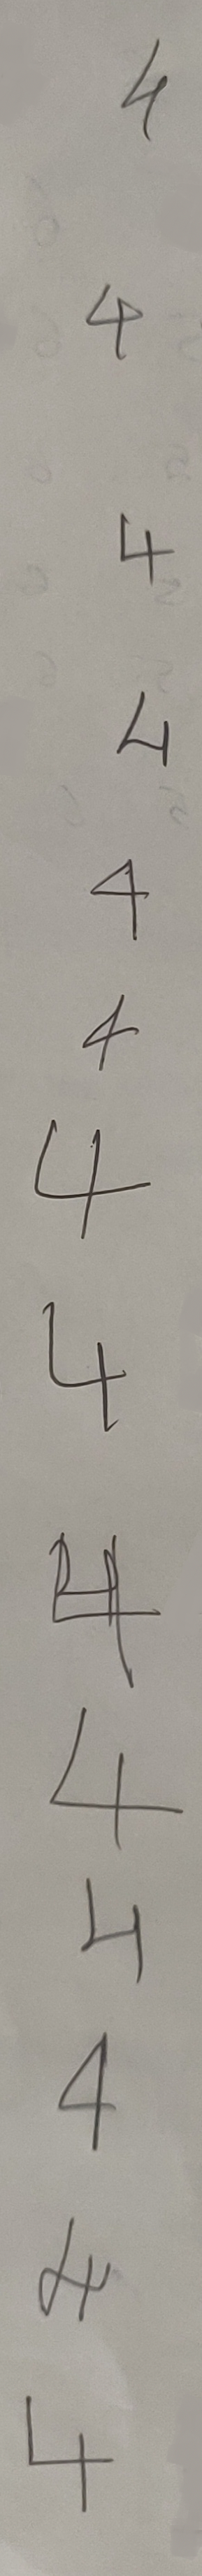 4
4
4
4
4
4
4
4
4
4
4
4
4
4